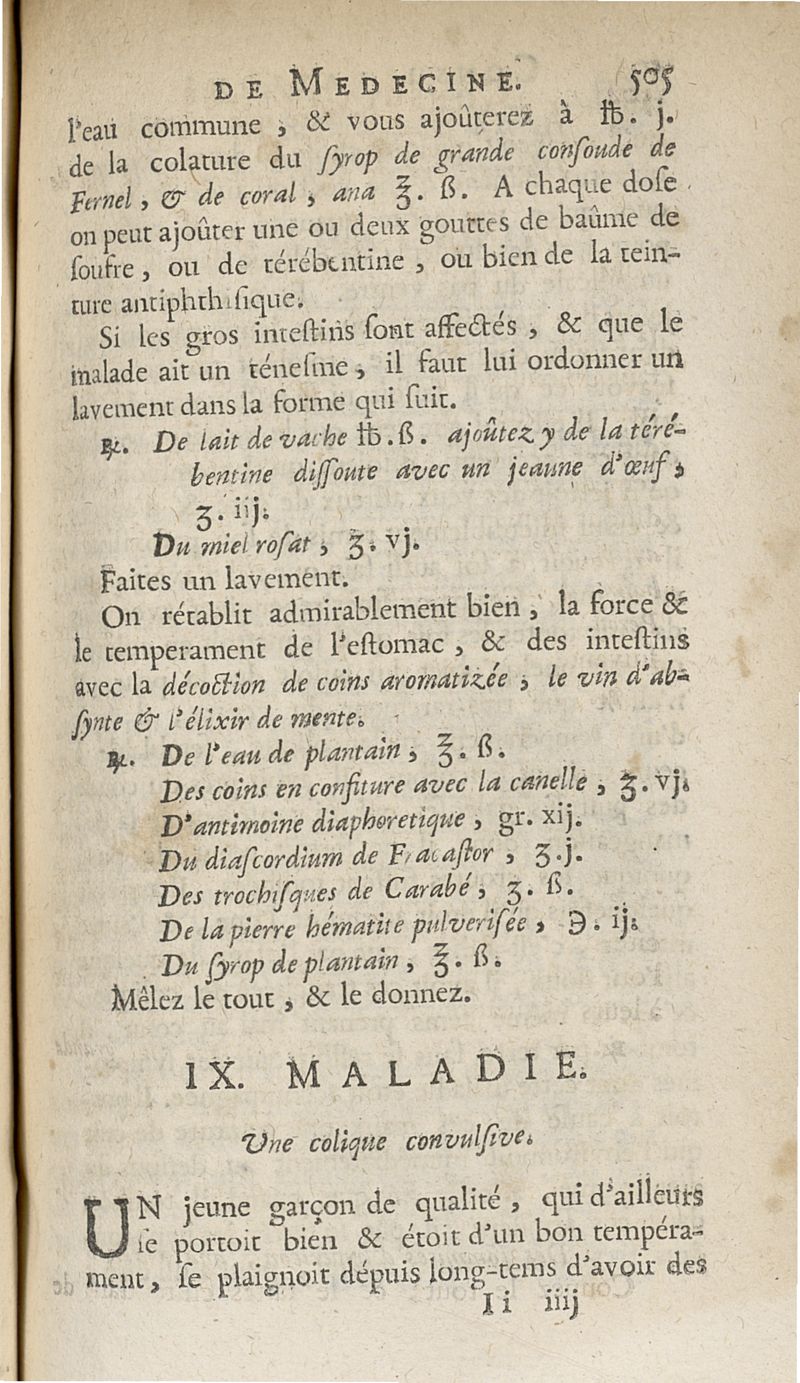 DE MEDECINE. 505
l'eau commune, & vous ajoûterez à ℔. j.
de la colature du ſyrop de grande conſoude de
Fernel, & de coral, ana ℥. ß. A chaque doſe
on peut ajoûter une ou deux gouttes de baûme de
ſoufre, ou de térébentine, ou bien de la tein-
ture antiphthiſique.
Si les gros inteſtins ſont affectés, & que le
malade ait un téneſme, il faut lui ordonner un
lavement dans la forme qui ſuit.
℞. De lait de vache ℔. ß. ajoûtez y de la téré-
bentine diſſoute avec un jeaune d'œuf,
ʒ. iij.
Du miel roſat, ʒ. vj.
Faites un lavement.
On rétablit admirablement bien, la force &
le temperament de l'eſtomac, & des inteſtins
avec la décoction de coins aromatizée, le vin d'ab-
ſynte & l'élixir de mente.
℞. De l'eau de plantain, ℥. ß.
Des coins en confiture avec la canelle, ʒ. vj.
D'antimoine diaphoretique, gr. xij.
Du diaſcordium de Fracaſtor, ʒ. j.
Des trochiſques de Carabé, ʒ. ß.
De la pierre hématite pulveriſée, ℈. ij.
Du ſyrop de plantain, ℥. ß.
Mêlez le tout, & le donnez.
IX. MALADIE.
Une colique convulſive.
UN jeune garçon de qualité, qui d'ailleurs
ſe portoit bien & étoit d'un bon tempéra-
ment, ſe plaignoit dépuis long-tems d'avoir des
Ii iiij